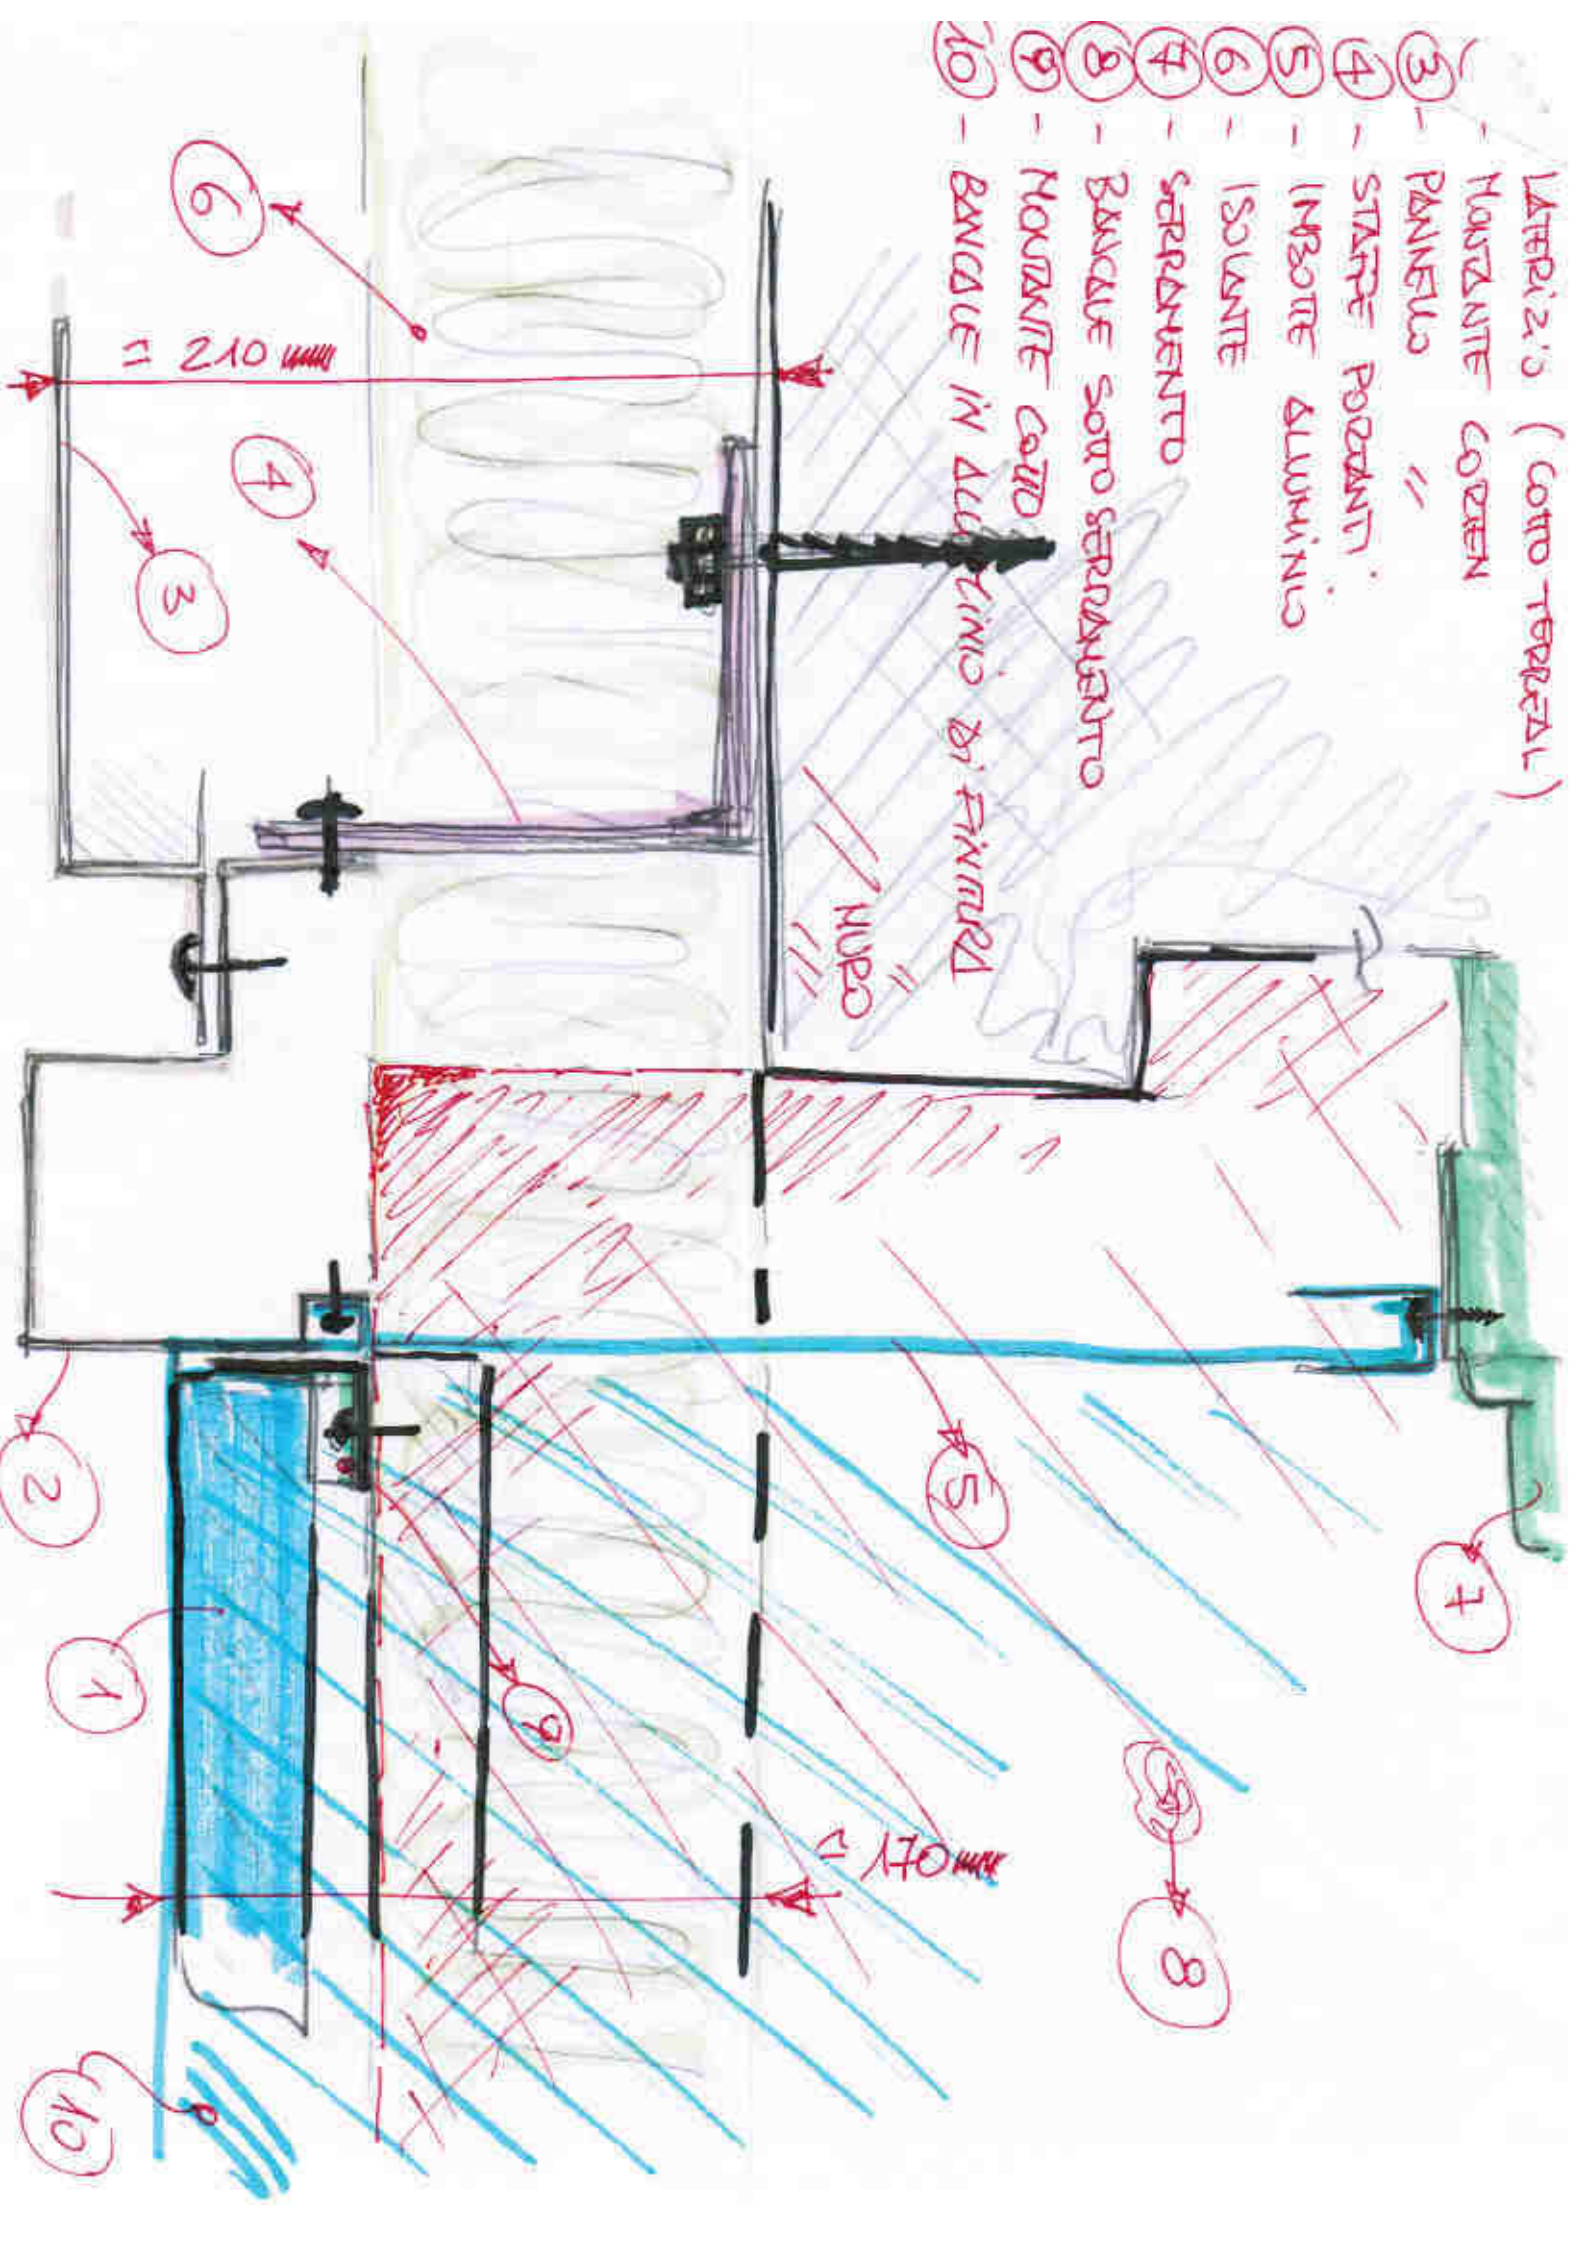 - LATERIZIO (COTTO TERREAL)
- MONTANTE CORTEN
3 - PANNELLO "
4 - STAFFE PORTANTI
5 - IMBOTTE ALLUMINIO
6 - ISOLANTE
7 - SERRAMENTO
8 - BANCALE SOTTO SERRAMENTO
9 - MONTANTE COTTO
10 - BANCALE IN ALLUMINIO DI FINITURA
MURO
6
≃ 210 mm
4
3
5
7
2
1
9
≃ 170 mm
8
10